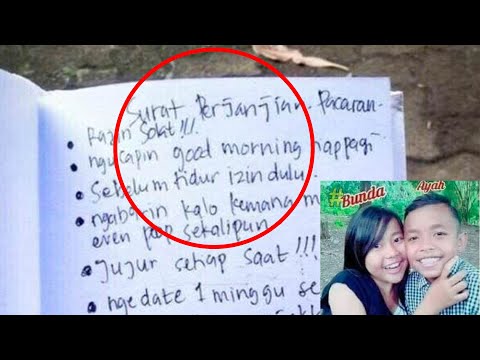 Surat Perjanjian Pacaran
Rajin Solat!!!
ngucapin good morning happagi
Sebelum tidur izin dulu
ngabarin kalo kemana m
even pup sekalipun
jujur setiap saat!!!
ngedate 1 minggu se
#Bunda
Ayah